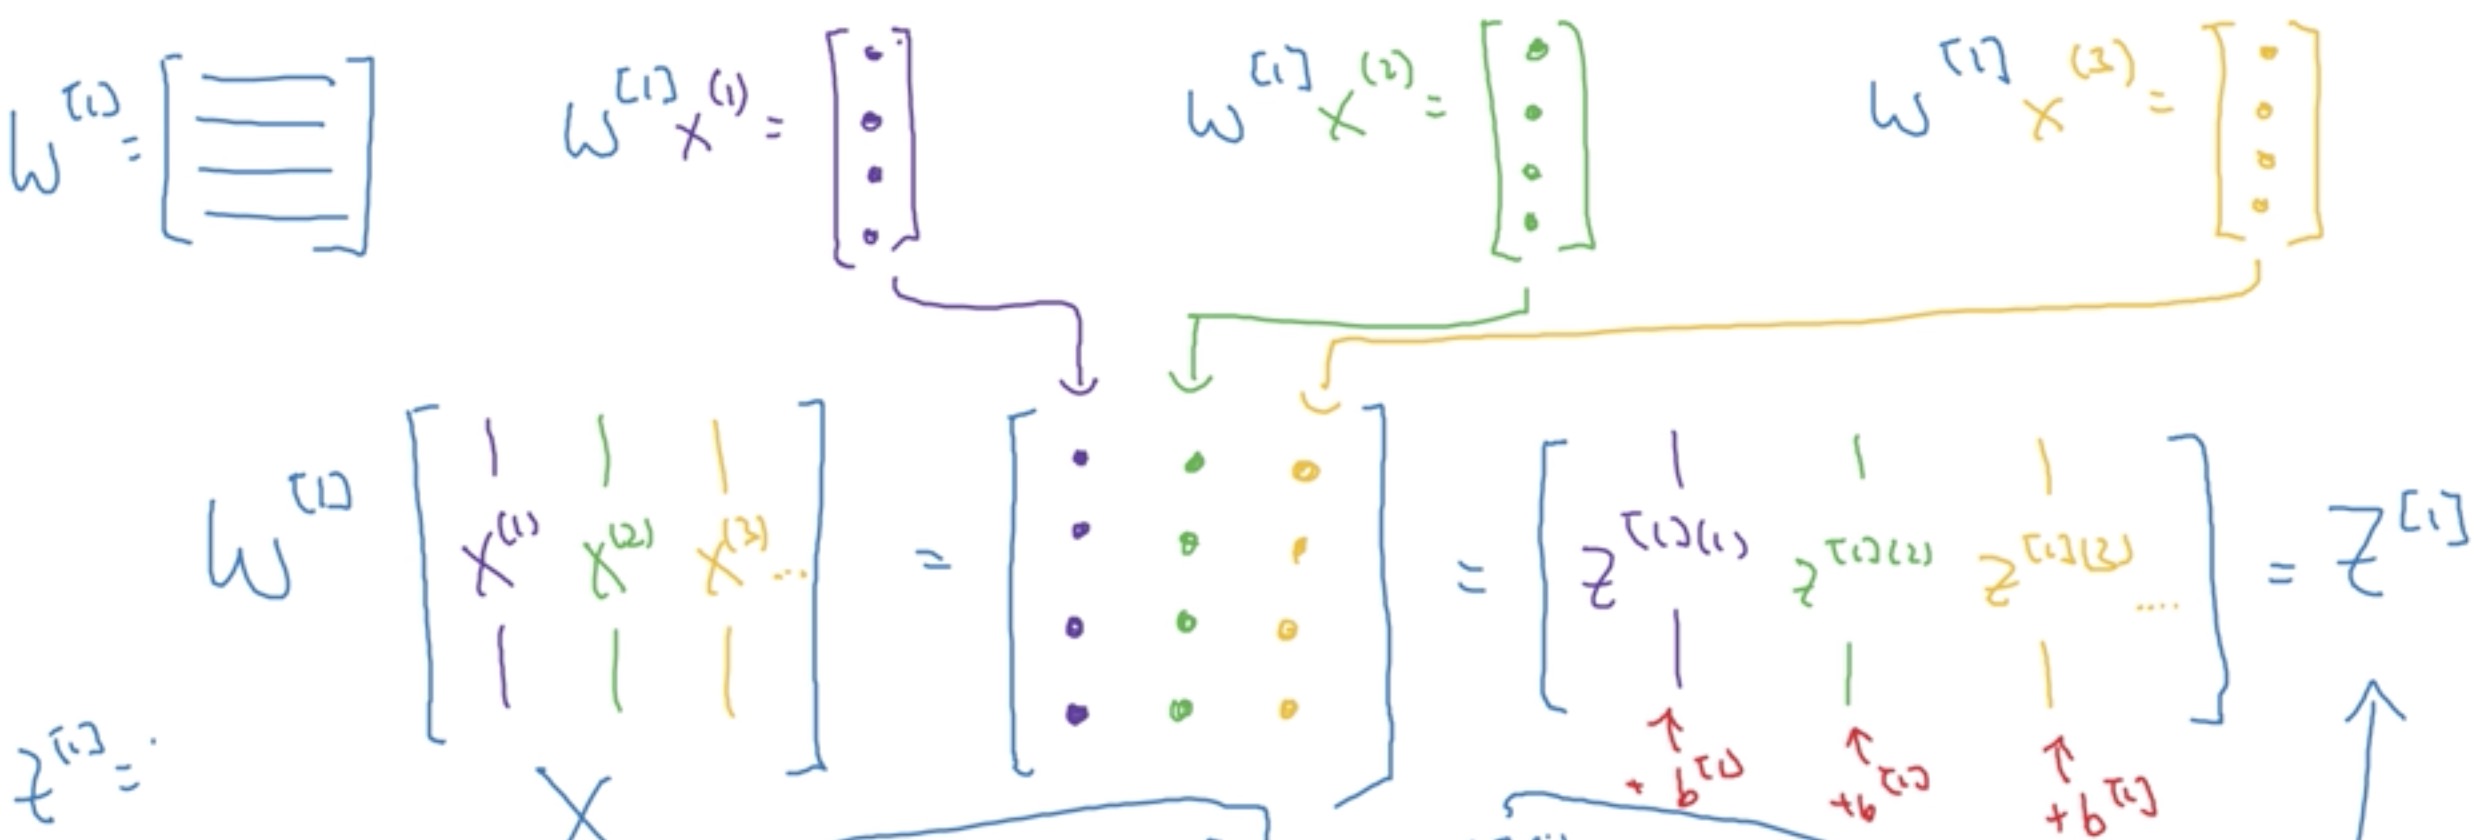 W^[1] = [ ]
W^[1] x^(1) = [ ]
W^[1] x^(2) = [ ]
W^[1] x^(3) = [ ]
W^[1] [ x^(1) x^(2) x^(3) ... ] = [ ] = [ z^[1](1) z^[1](2) z^[1](3) .... ] = Z^[1]
+ b^[1] + b^[1] + b^[1]
z^[1] =
X